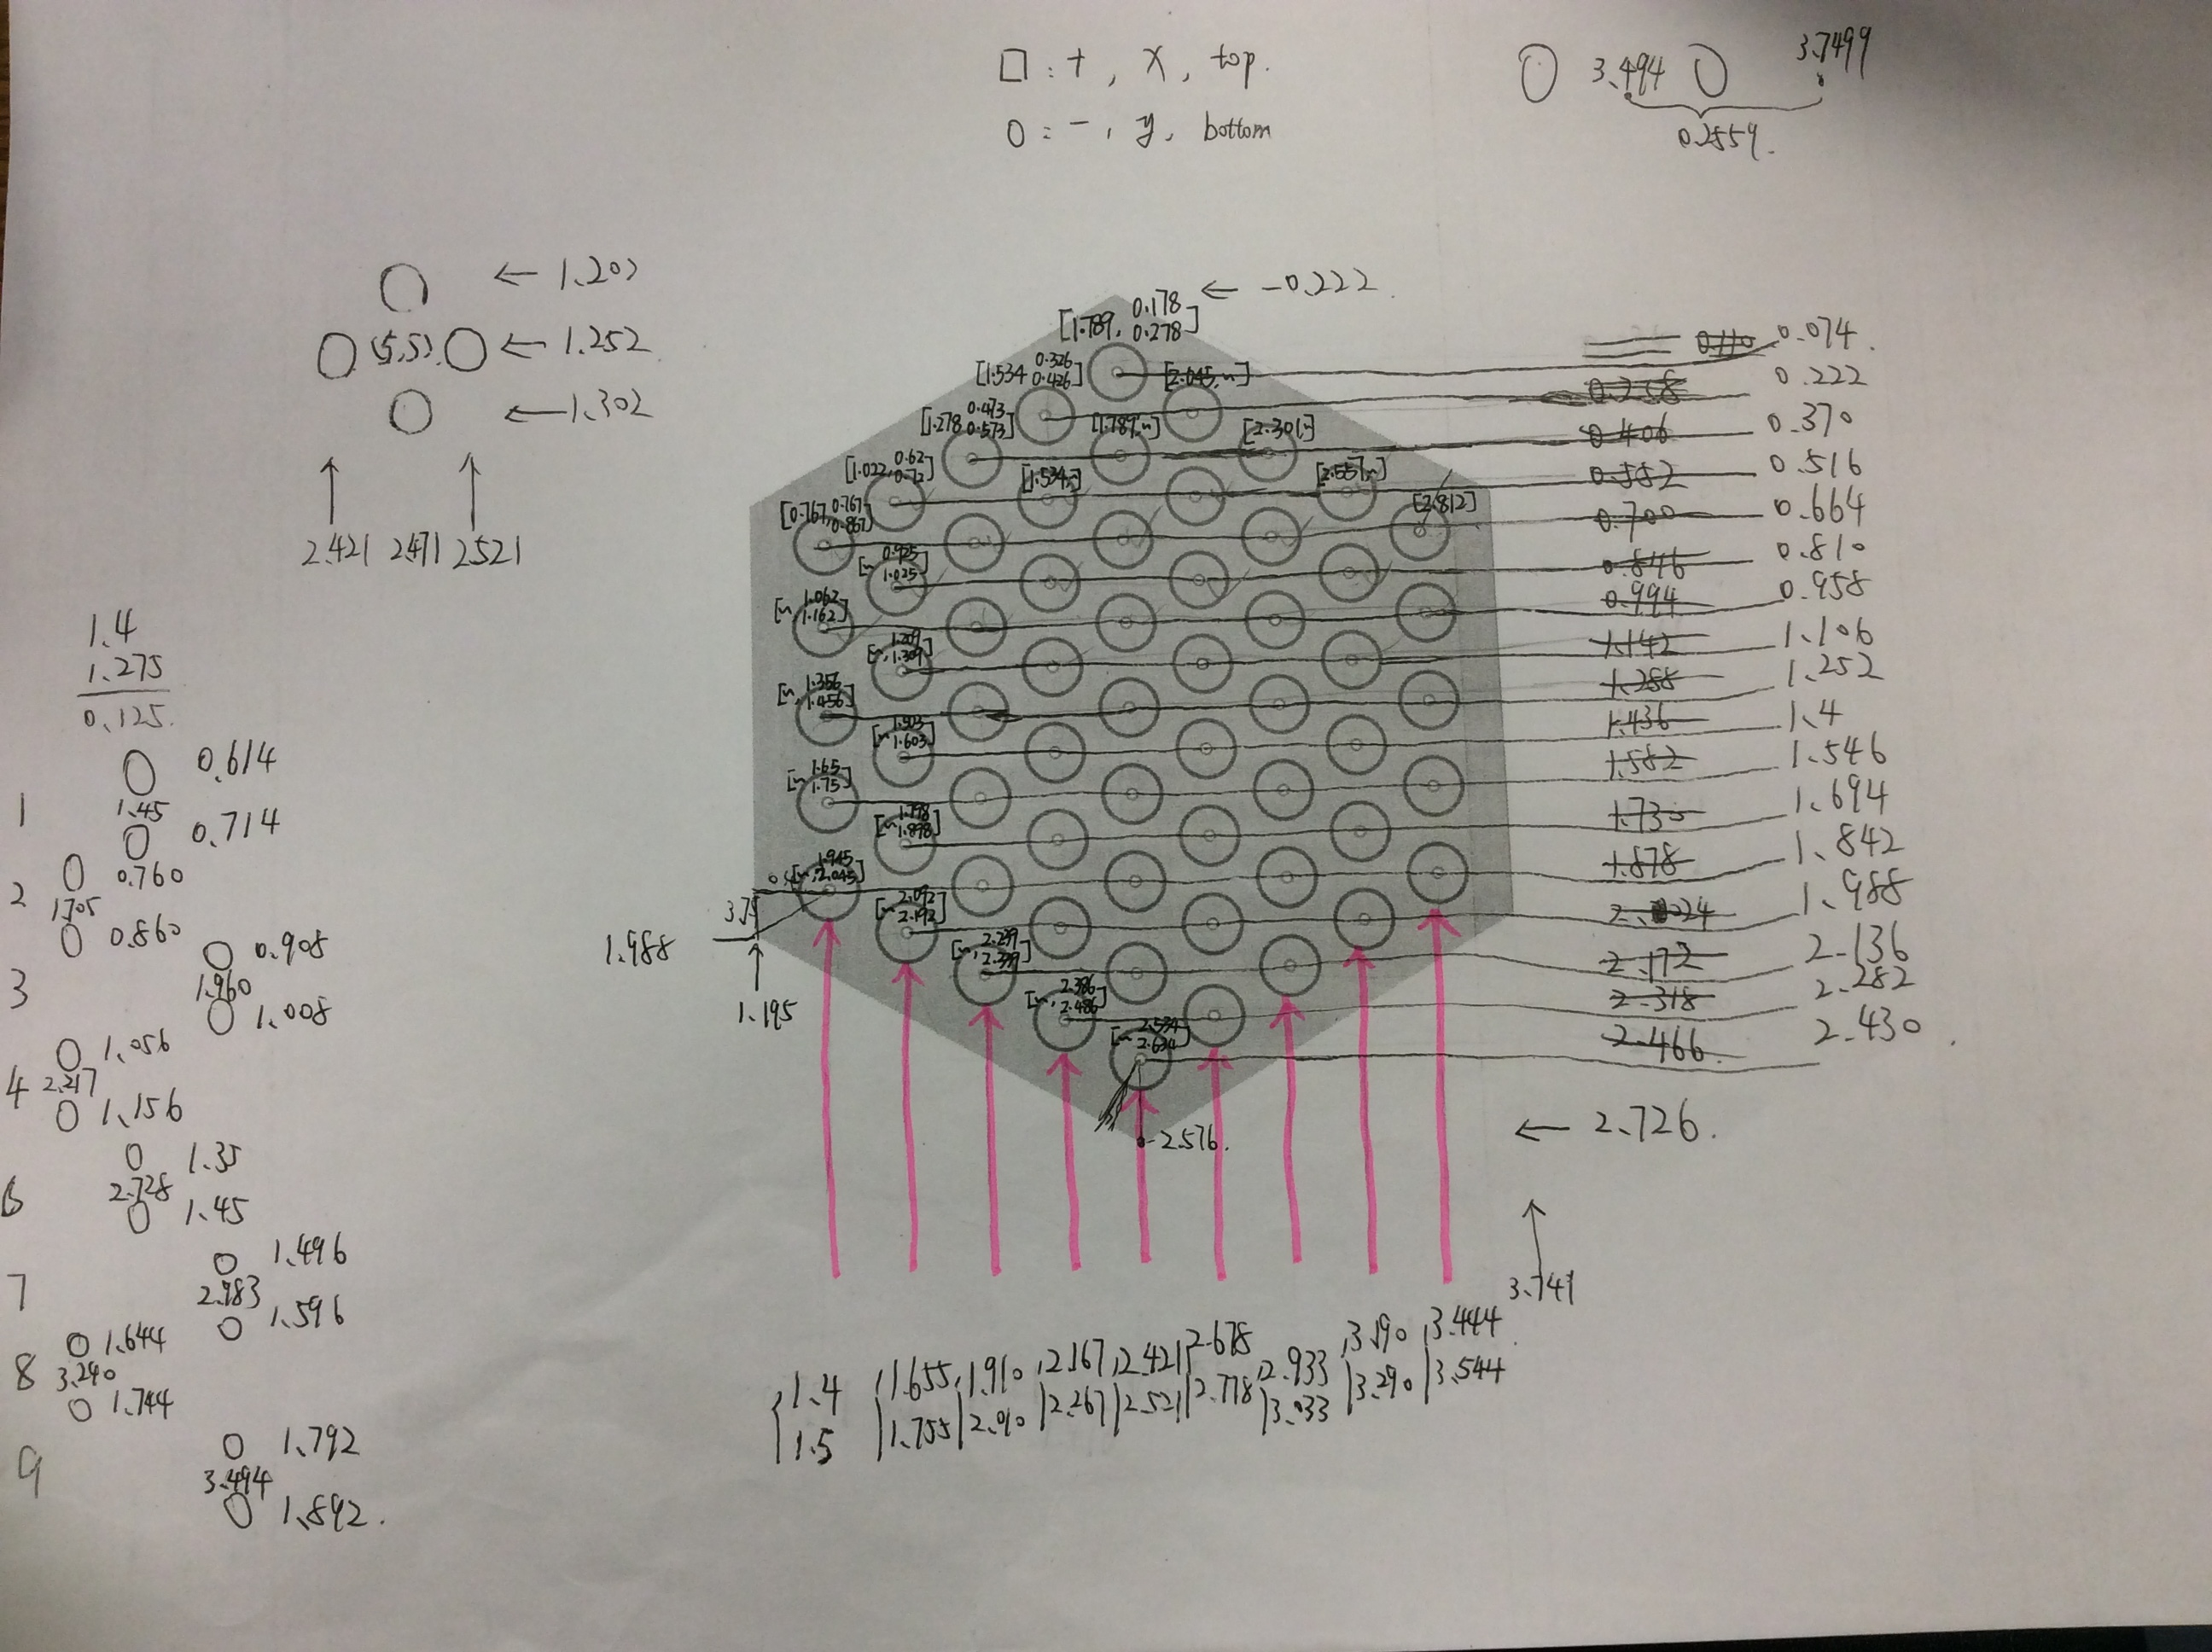 □ : +, X, top.
O : -, y, bottom
3.494
3.7499
0.2559.
← 1.202
(5,5) ← 1.252
← 1.302
2.421 2.471 2.521
1.4
1.275
0.125.
1 0.614
1.45
0.714
2 0.760
1.705
0.860
3 0.908
1.960
1.008
4 1.056
2.217
1.156
6 1.35
2.728
1.45
7 1.496
2.983
1.596
8 1.644
3.240
1.744
9 1.792
3.494
1.892.
← -0.222
[1.789, 0.178
0.278]
[1.534 0.326
0.426] [2.045, ~]
[1.278 0.473
0.573] [1.789, ~] [2.301, ~]
[1.022, 0.62
0.72] [1.534, ~] [2.557, ~]
[0.767, 0.767
0.867] [2.812]
[~ 0.925
1.025]
[~ 1.062
1.162]
[~, 1.209
1.309]
[~, 1.356
1.456]
[~ 1.503
1.603]
[~ 1.65
1.75]
[~ 1.798
1.898]
[~, 1.945
2.045]
[~ 2.092
2.192]
[~, 2.239
2.339]
[~, 2.386
2.486]
[~ 2.534
2.634]
3.75
1.988
1.195
2.576.
0.110 0.074.
0.258 0.222
0.406 0.370
0.552 0.516
0.700 0.664
0.846 0.810
0.994 0.958
1.142 1.106
1.288 1.252
1.436 1.4
1.582 1.546
1.730 1.694
1.878 1.842
2.024 1.988
2.172 2.136
2.318 2.282
2.466. 2.430.
← 2.726.
3.749
1.4, 1.655, 1.910, 2.167, 2.421, 2.678, 2.933, 3.190, 3.444
1.5 1.755 2.010 2.267 2.521 2.778 3.033 3.290 3.544